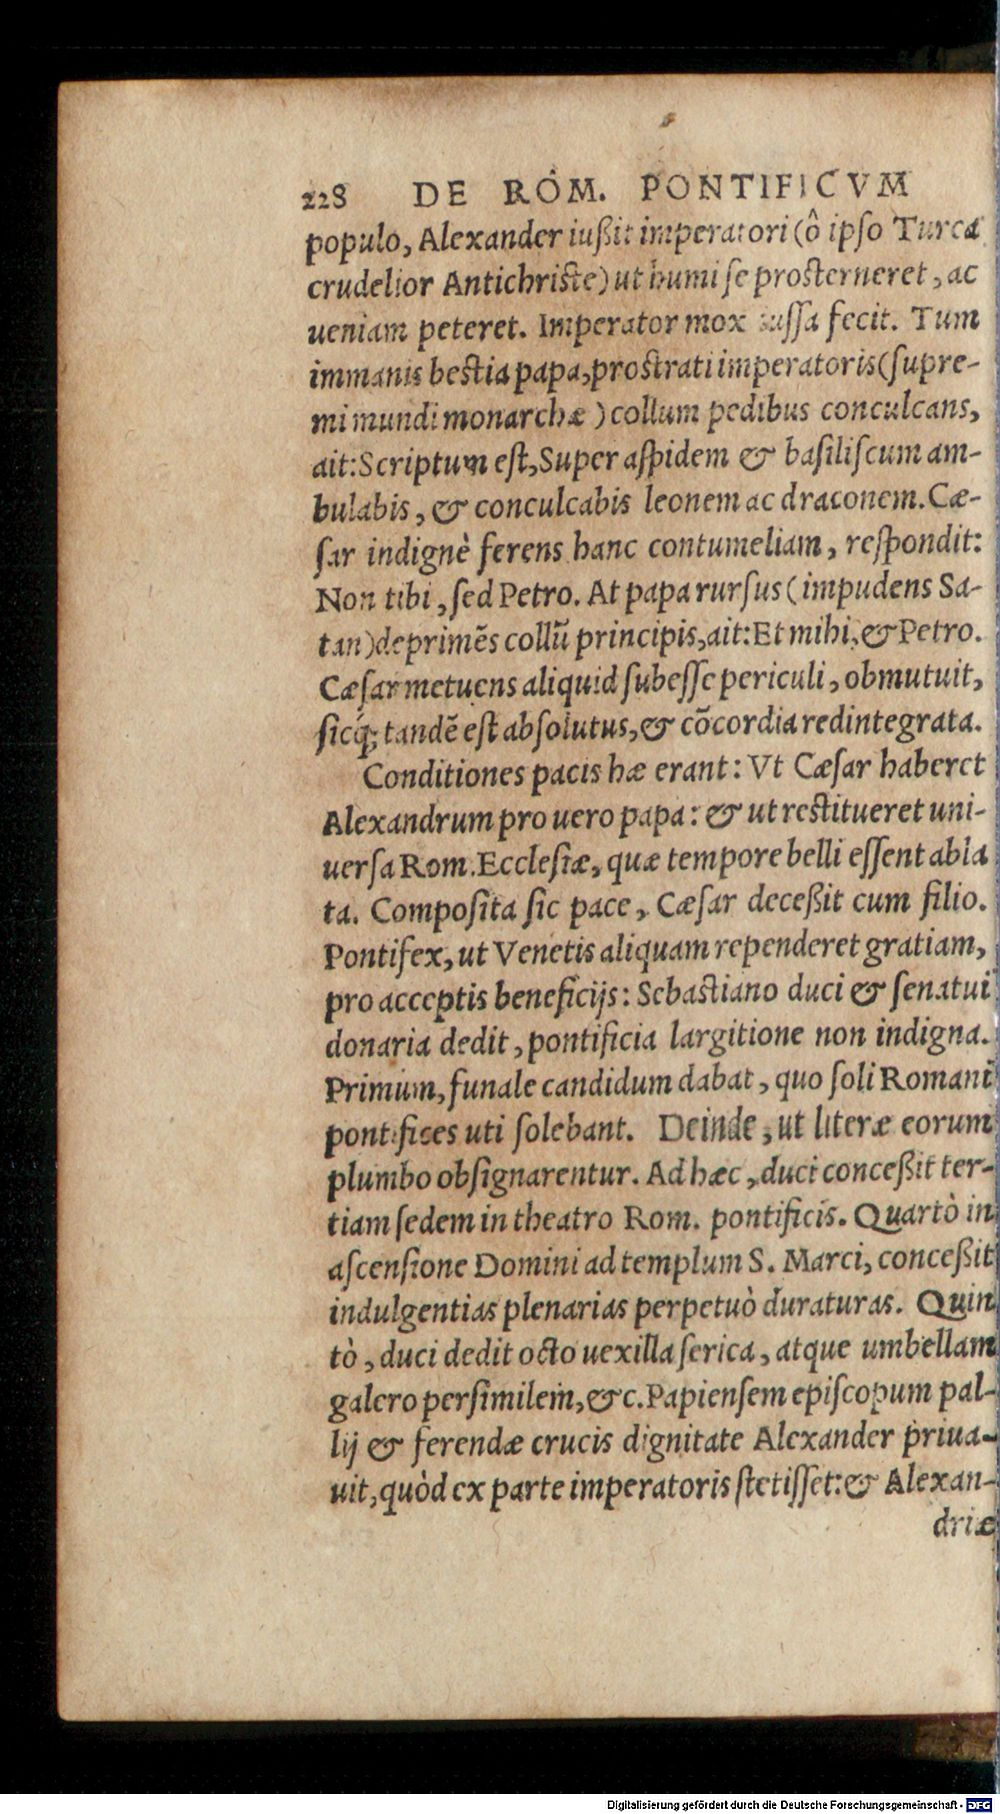 228 DE ROM. PONTIFICVM
populo, Alexander iußit imperatori (ô ipso Turca
crudelior Antichriste) ut humi se prosterneret, ac
ueniam peteret. Imperator mox iussa fecit. Tum
immanis bestia papa, prostrati imperatoris (supre-
mi mundi monarchæ) collum pedibus conculcans,
ait: Scriptum est, Super aspidem & basiliscum am-
bulabis, & conculcabis leonem ac draconem. Cæ-
sar indignè ferens hanc contumeliam, respondit:
Non tibi, sed Petro. At papa rursus (impudens Sa-
tan) deprimẽs collũ principis, ait: Et mihi, & Petro.
Cæsar metuens aliquid subesse periculi, obmutuit,
sicq́; tandẽ est absolutus, & cõcordia redintegrata.
Conditiones pacis hæ erant: Vt Cæsar haberet
Alexandrum pro uero papa: & ut restitueret uni-
uersa Rom. Ecclesiæ, quæ tempore belli essent abla
ta. Composita sic pace, Cæsar deceßit cum filio.
Pontifex, ut Venetis aliquam rependeret gratiam,
pro acceptis beneficijs: Sebastiano duci & senatui
donaria dedit, pontificia largitione non indigna.
Primùm, funale candidum dabat, quo soli Romani
pontifices uti solebant. Deinde, ut literæ eorum
plumbo obsignarentur. Ad hæc, duci conceßit ter-
tiam sedem in theatro Rom. pontificis. Quartò in
ascensione Domini ad templum S. Marci, conceßit
indulgentias plenarias perpetuò duraturas. Quin
tò, duci dedit octo uexilla serica, atque umbellam
galero persimilem, &c. Papiensem episcopum pal-
lij & ferendæ crucis dignitate Alexander priua-
uit, quòd ex parte imperatoris stetisset: & Alexan-
driæ
Digitalisierung gefördert durch die Deutsche Forschungsgemeinschaft - DFG